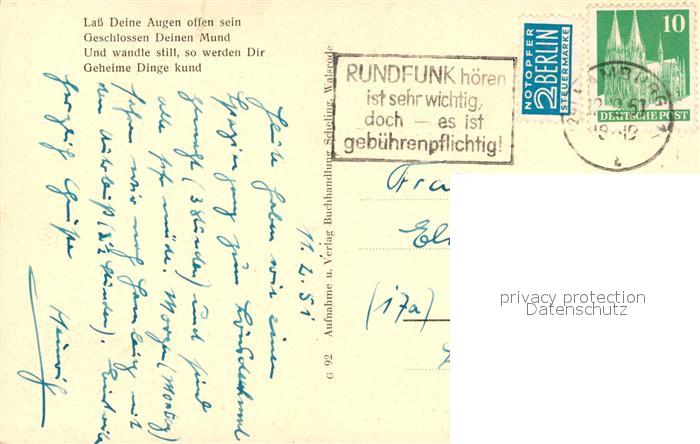 Laß Deine Augen offen sein
Geschlossen Deinen Mund
Und wandle still, so werden Dir
Geheime Dinge kund
11. 2. 51
Heute haben wir einen
Spaziergang zum Lönsdenkmal
gemacht (3 Stunden) und sind
alle sehr müde. Morgen (Montag)
fahren wir nach Hamburg mit
dem Autobus (2½ Stunden).
herzliche Grüße
G 92 Aufnahme u. Verlag Buchhandlung Schelling, Walsrode
RUNDFUNK hören
ist sehr wichtig,
doch — es ist
gebührenpflichtig!
NOTOPFER
2 BERLIN
STEUERMARKE
10
DEUTSCHE POST
HAMBURG
Fra
(17a)
privacy protection
Datenschutz